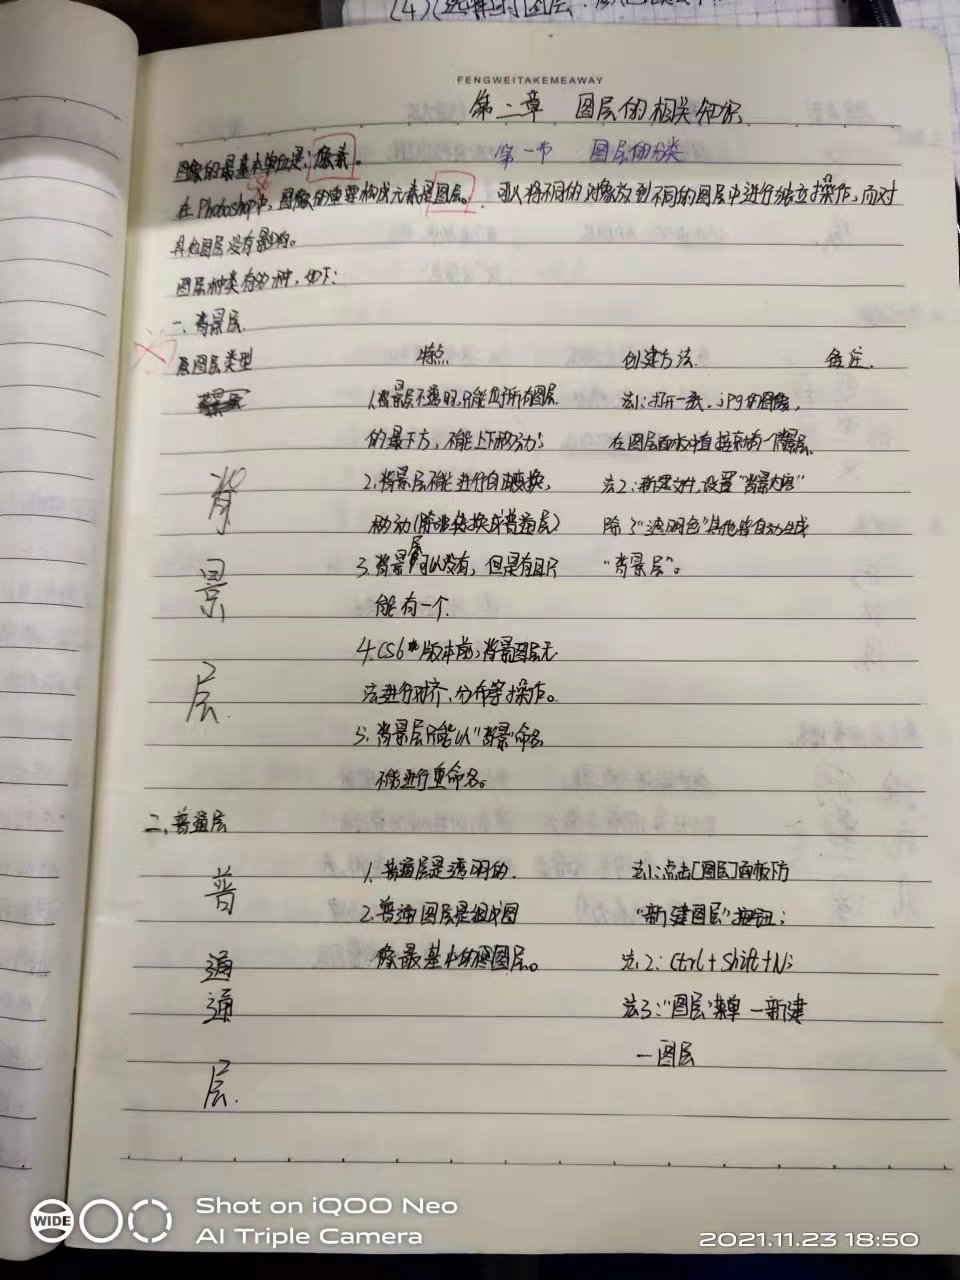 FENGWEITAKEMEAWAY
第二章 图层的相关知识
第一节 图层的分类
图像的最基本单位是：像素。
在Photoshop中，图像的重要构成元素是图层。可以将不同的对象放到不同的图层中进行独立操作，而对
其他图层没有影响。
图层种类有 种，如下：
一、背景层
图层类型 特点 创建方法 备注
背景层
1.背景层不透明，只能位于所有图层
的最下方，不能上下移动；
2.背景层不能进行自由变换，
移动(除非转换成普通层)
3.背景层可以没有，但是有且只
能有一个.
4.CS6 版本前，背景图层无
法进行对齐、分布等操作。
5.背景层只能以"背景"命名
不能进行重命名。
法1:打开一张.jpg的图像，
在图层面板中直接就有一个背景层.
法2：新建文件，设置"背景内容"
除了"透明色"其他皆自动生成
"背景层"。
二、普通层
普通通层.
1.普通层是透明的.
2.普通图层是组成图
像最基本的图层。
法1:点击[图层]面板下方
"新建图层"按钮；
法2：Ctrl+Shift+N；
法3："图层"菜单—新建
—图层
WIDE
Shot on iQOO Neo
AI Triple Camera
2021.11.23 18:50